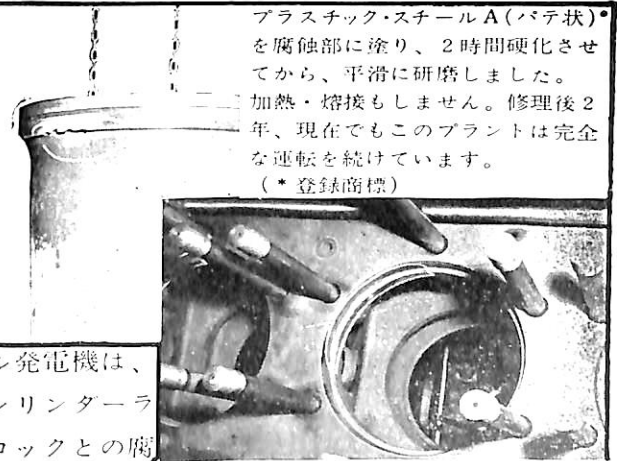 プラスチック・スチールA(パテ状)*
を腐蝕部に塗り、2時間硬化させ
てから、平滑に研磨しました。
加熱・熔接もしません。修理後2
年、現在でもこのプラントは完全
な運転を続けています。
(* 登録商標)
ン発電機は、
シリンダーラ
ロックとの腐